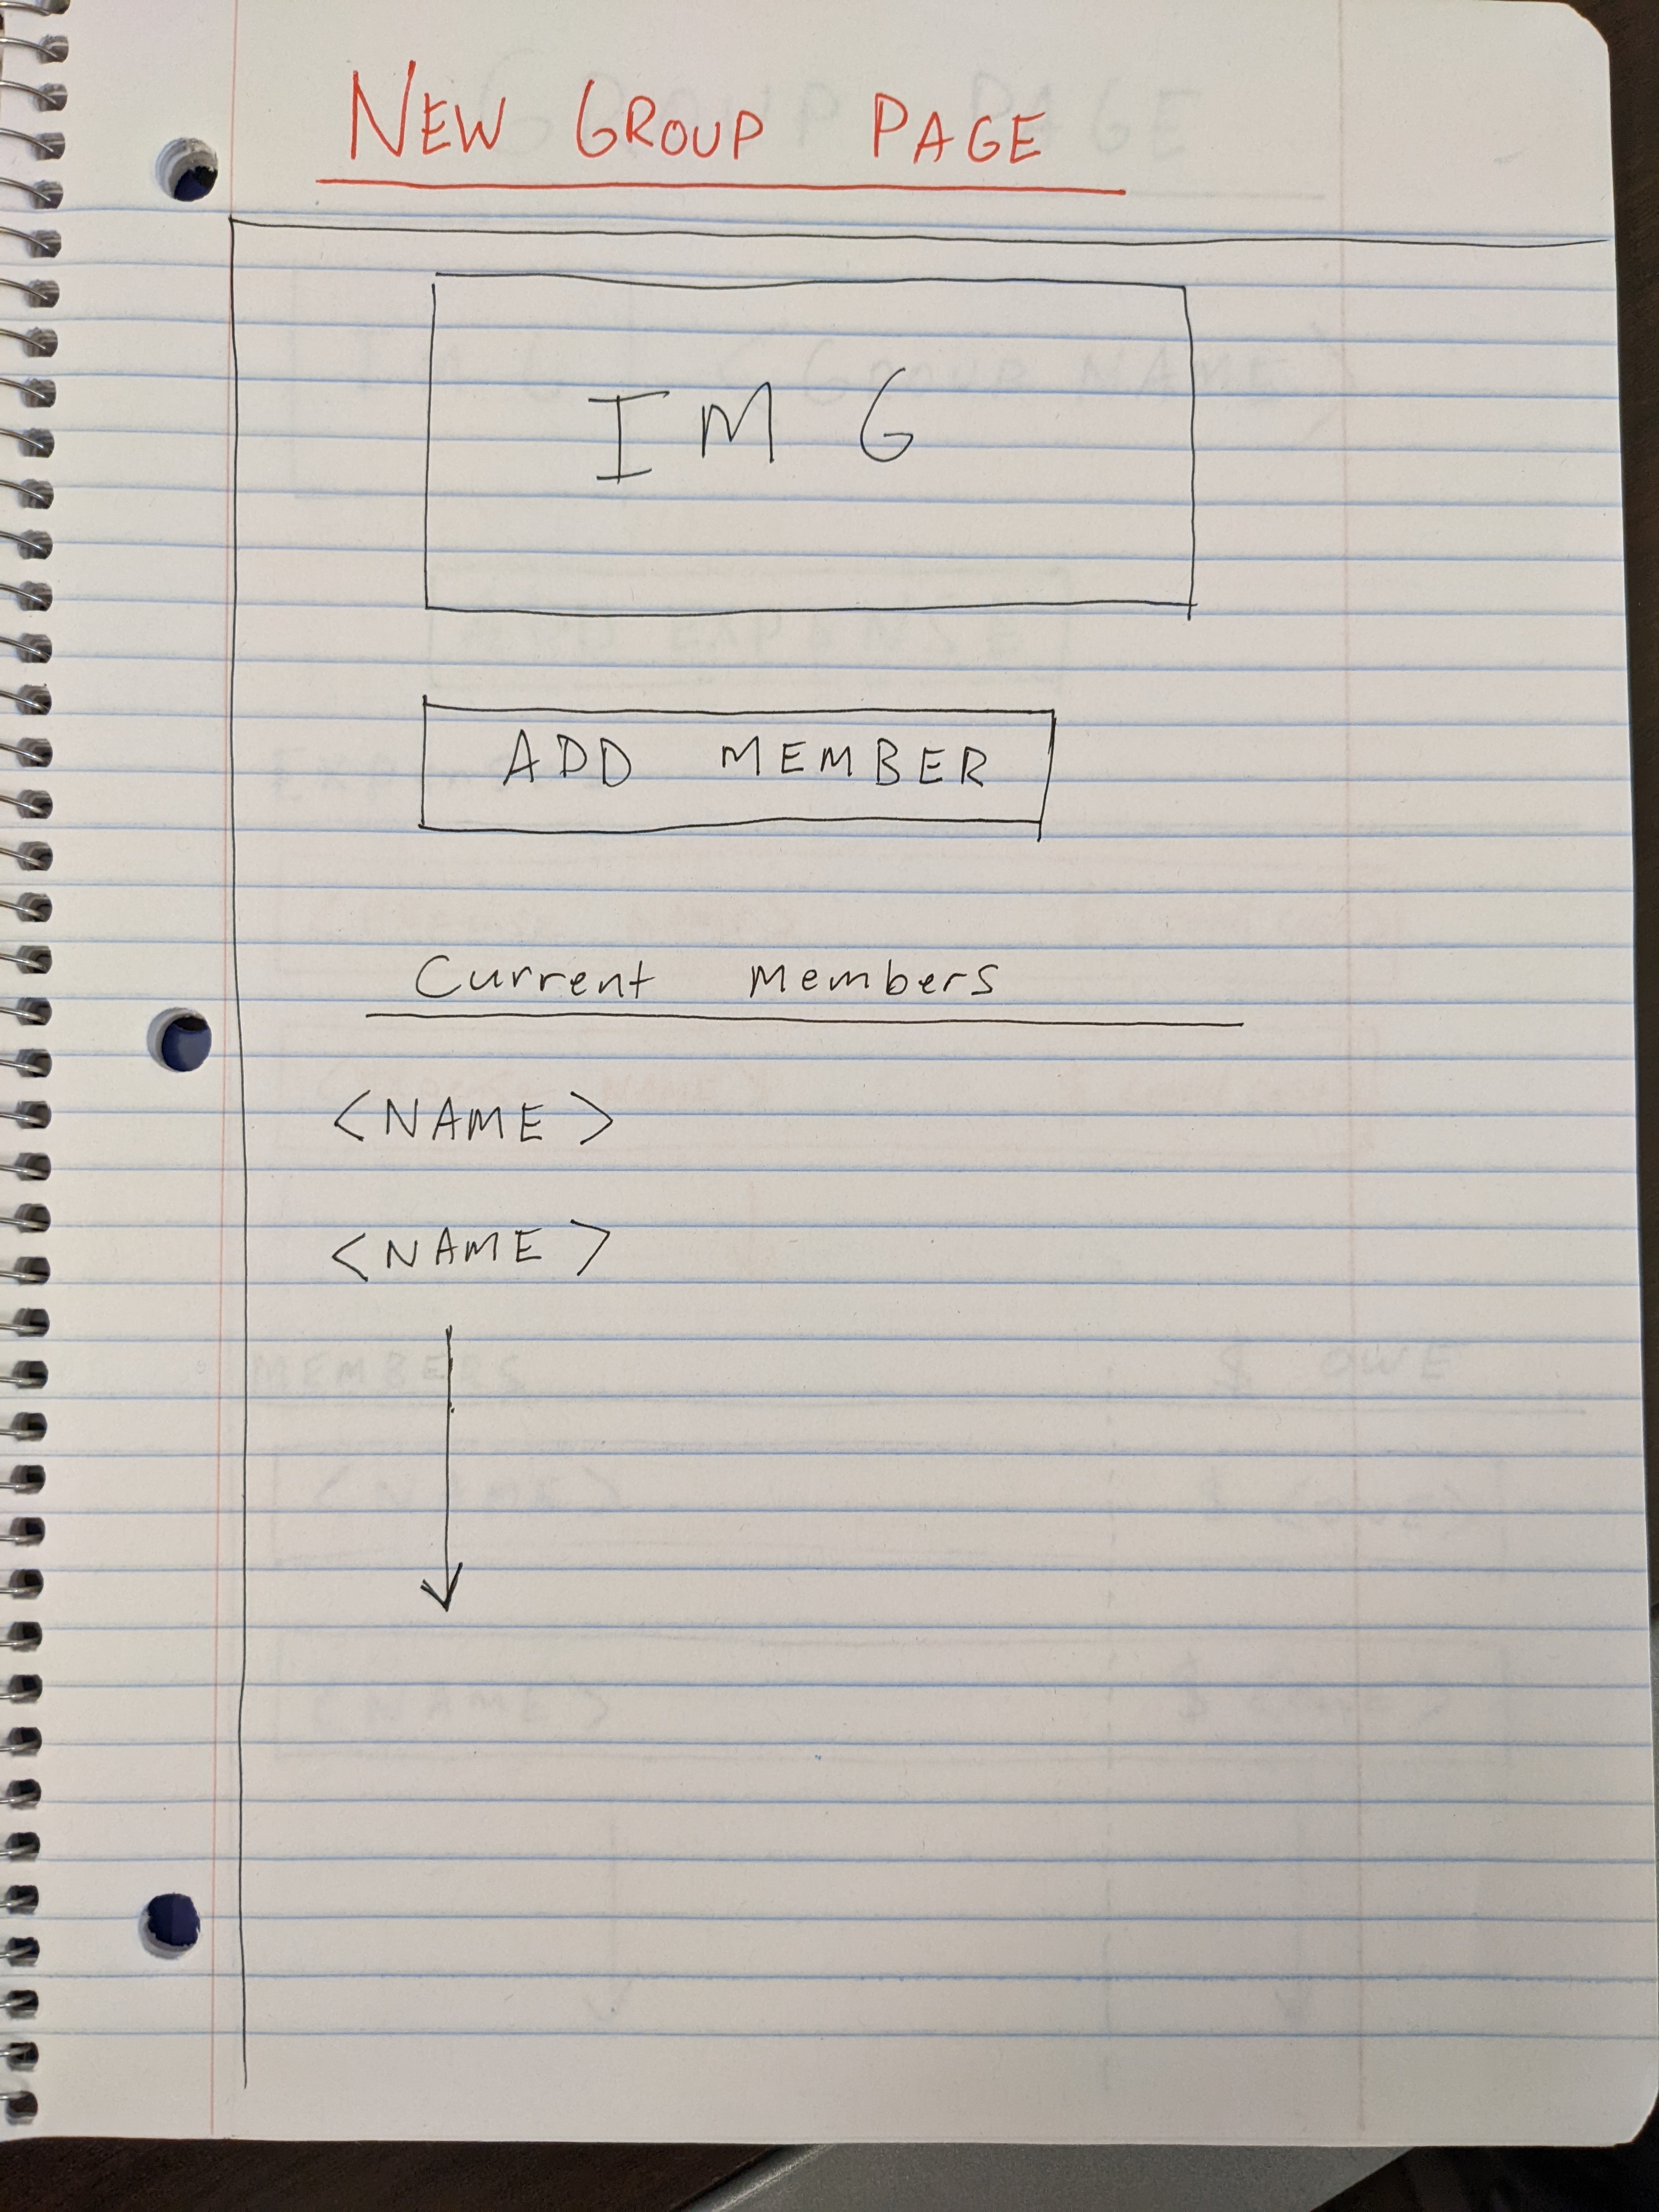 NEW GROUP PAGE
IMG
ADD MEMBER
Current Members
<NAME>
<NAME>